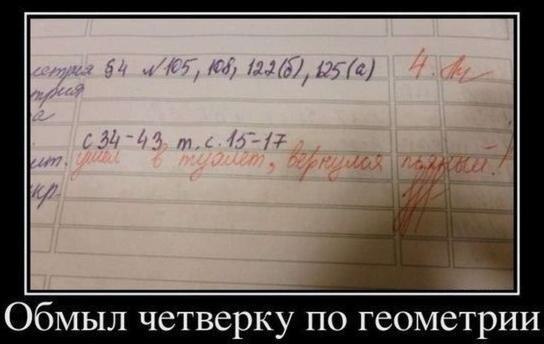 етрия §4 №105, 108, 122(б), 125(а) 4.
трия
а
с 34-43 т. с. 15-17
ит. ушёл в туалет, вернулся пьяный!
укр.
Обмыл четверку по геометрии